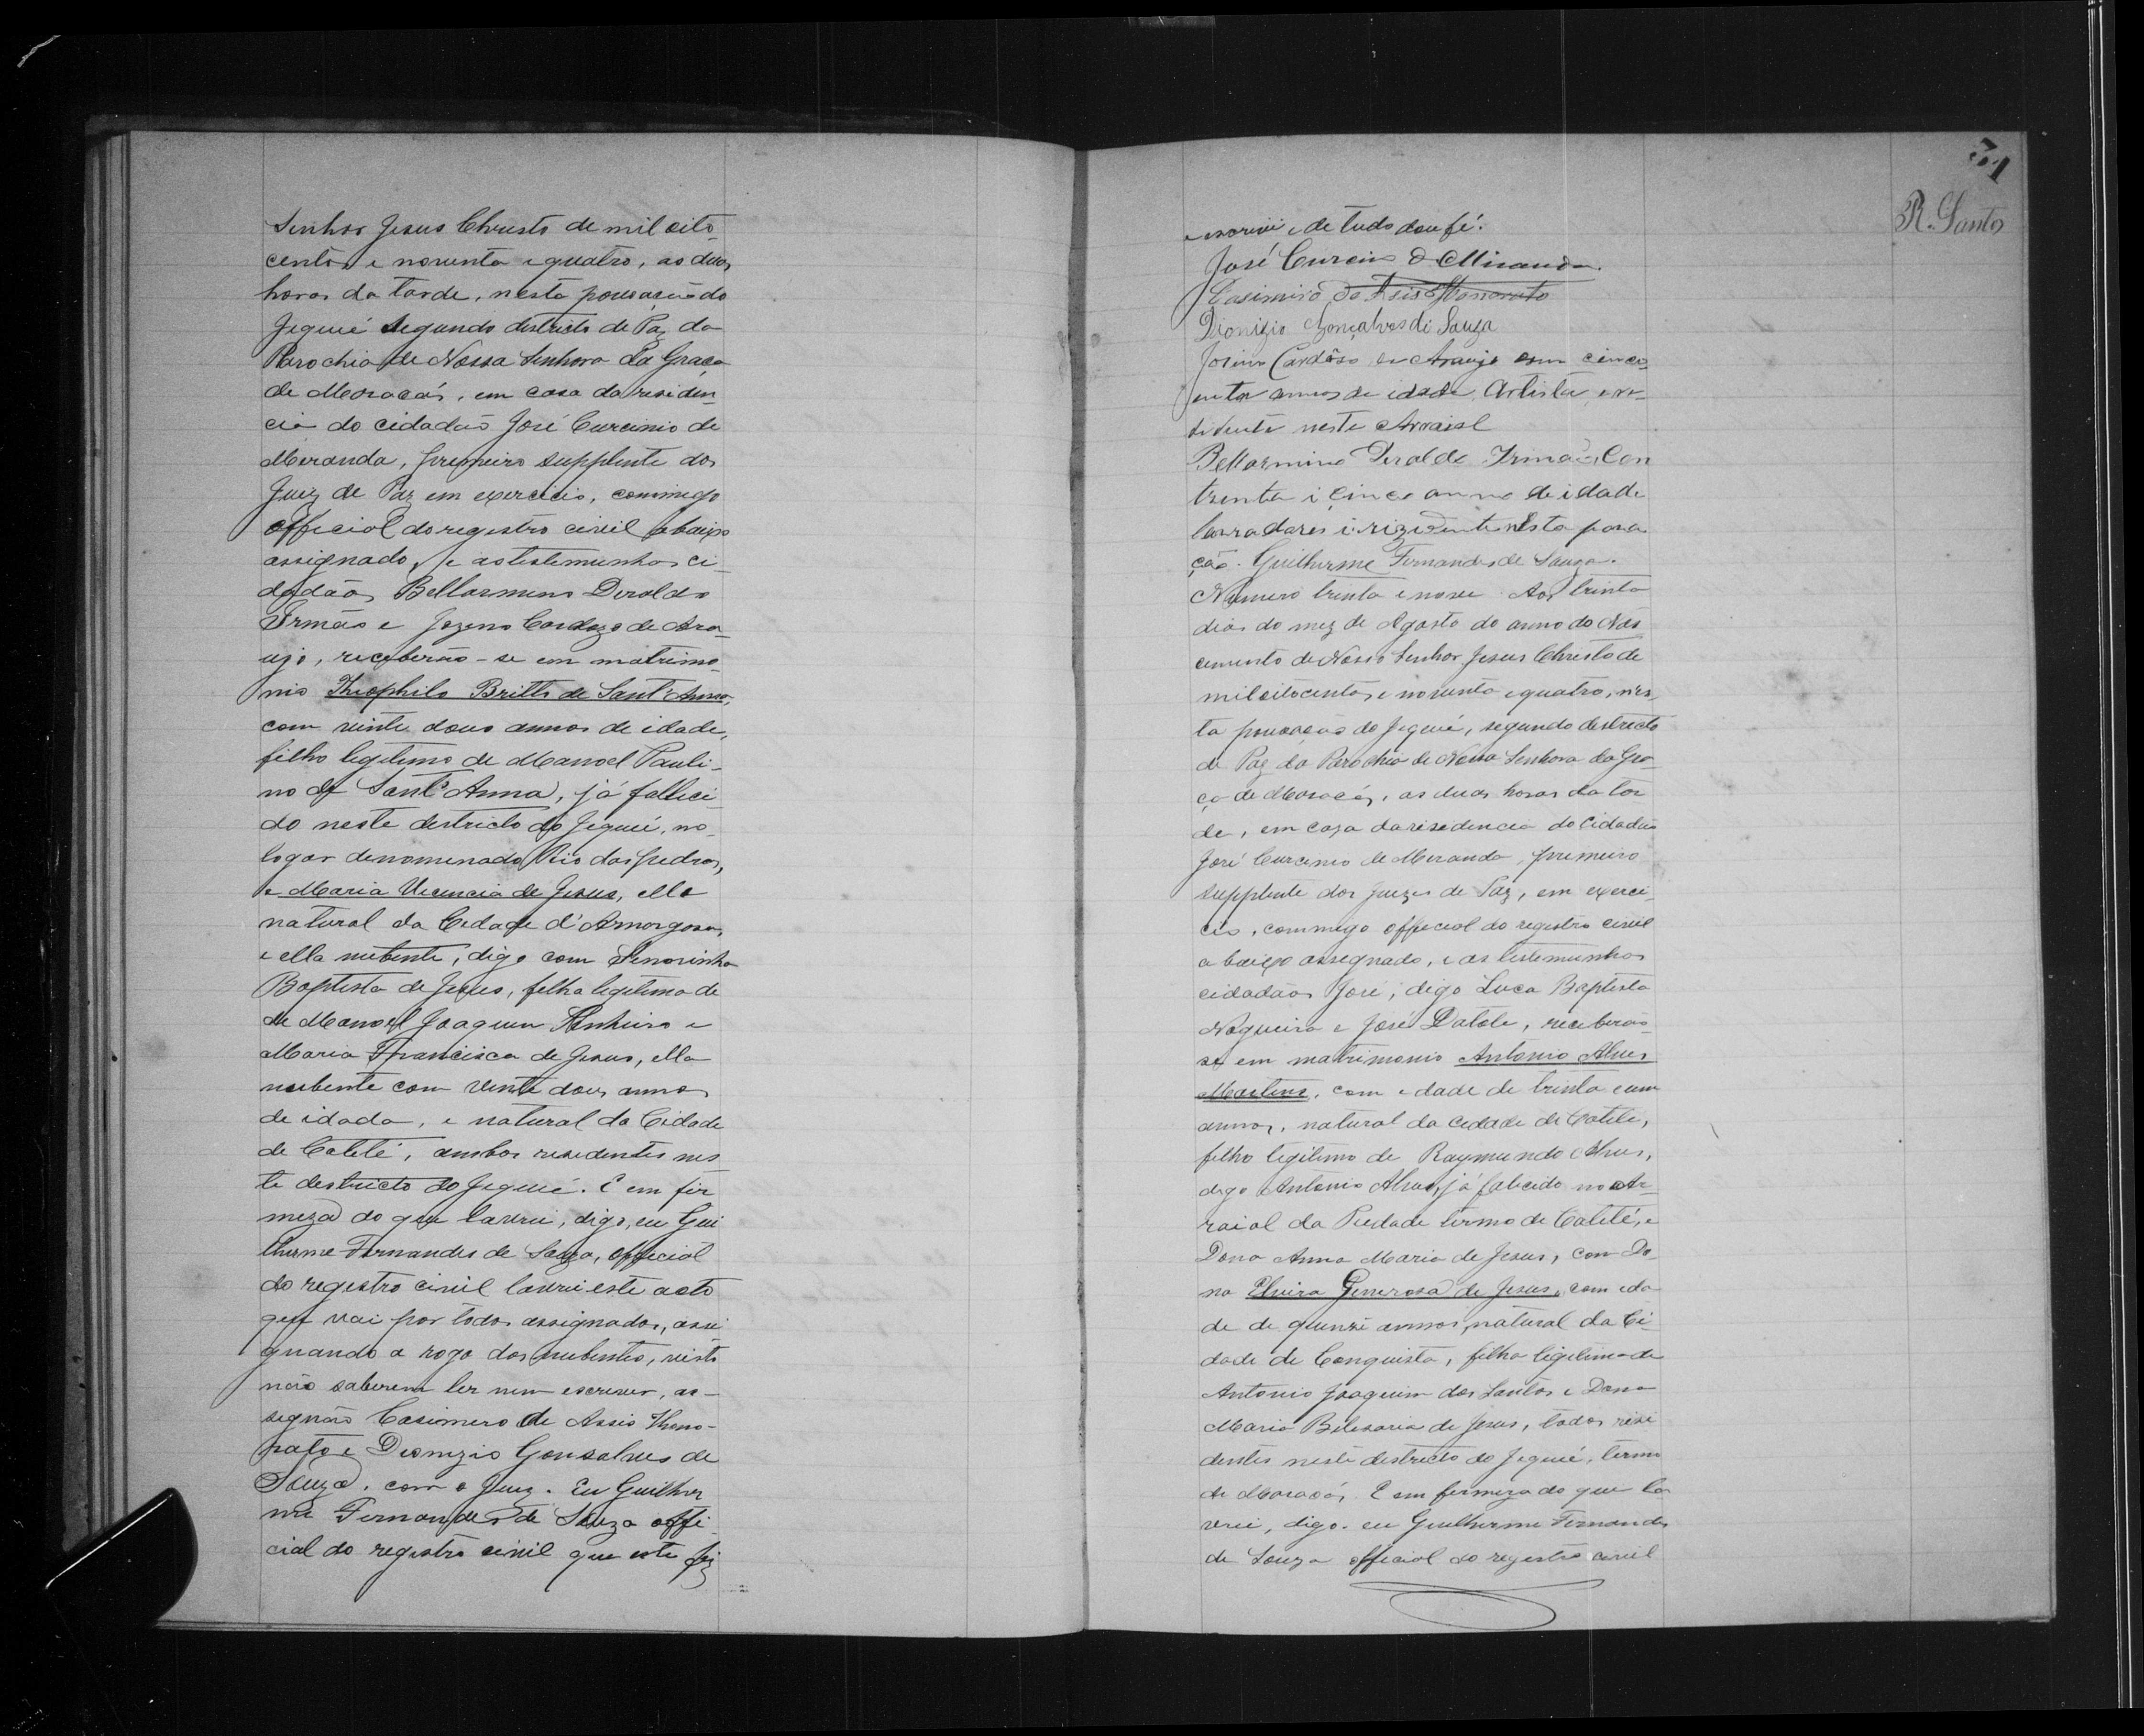 Senhor Jesus Christo de mil oito-
centos e noventa e quatro, as duas
horas da tarde, nesta povoação do
Jequié segundo destricto de Paz da
Parochia de Nossa Senhora da Graça
de Maracás, em casa da residen-
cia do cidadão José Curcinio de
Meranda, premeiro supplente dos
Juiz de Paz em exercicio, commigo
official do registro civil abaixo
assignado, e as testemunhas ci-
dadãos Bellarmino Deraldo
Irmão e Jozeno Cardozo de Ara-
ujo, receberão-se em matrimo-
nio Theophilo Britto de Sant'Anna,
com vinte dous annos de idade,
filho legitimo de Manoel Pauli-
no de Sant'Anna, já falleci
do neste destricto do Jequié, no
logar denomenado Rio das pedras,
e Maria Vicencia de Jesus, elle
natural da Cidade d'Amargosa,
e ella nubente, digo com Senorinha
Baptista de Jesus, filha legitima de
de Manoel Joaquim e
Maria Francisca de Jesus, ella
nubente com vinte dous annos
de idada, e natural da Cidade
de Cateté, ambos residentes nes-
te destricto do Jequié. E em fir
meza do que lavrei, digo, eu Gui
lherme Fernandes de Souza, official
do registro civil lavrei este acto
que vai por todos assignados, assi
gnando a rogo dos nubentes, visto
não saberem ler nem escrever, as-
segnão Casimero de Assis Hono-
rato e Deonizio Gonsalves de
Souza, com o Juiz. Eu Guilher
me Fernandes de Souza offi-
cial do registro civil que este fiz
31
R. Santos
e escrevi e de tudo dou fé.
José Curcino de Miranda.
Casimiro de Asis Honorato
Dionizio Gonçalves di Souza
Josino Cardôso de Araujo com cinco-
enta annos de idade, Artista, e re-
sidente neste Arraial
Bellarmino Deraldo Irmão Con
trenta i cinco anno de idade
lavradores i rizidente nesta pova
ção. Guilherme Fernandes de Souza.
Numero trinta e nove Aos trinta
dias do mez de Agosto do anno do Nas
cemento de Nosso Senhor Jesus Christo de
mil oitocentos e noventa e quatro, nes
ta povoação do Jequié, segundo destricto
de Paz da Parochia de Nossa Senhora da Gra-
ça de Maracás, as duas horas da tar
de, em caza da residencia do Cidadão
José Curcinio de Meranda, premeiro
supplente dos Juizes de Paz, em exerci-
cio, commigo official do registro civil
abaixo assegnado, e as testemunhas
cidadãos José, digo Luca Baptista
Nogueira e José Datole, receberão-
se em matrimonio Antonio Alves
Martins, com edade de trinta e um
annos, natural da cidade de Cateté,
filho legitimo de Raymundo Alves,
digo Antonio Alves, já falicido no Ar-
raial da Piedade termo de Cateté, e
Dona Anna Maria de Jesus, com Do-
na Elvira Generosa de Jesus, com eda
de de quinze annos, natural da Ci-
dade de Conquista, filha legitima de
Antonio Joaquim dos Santos e Dona
Maria Belesaria de Jesus, todos resi
dentes neste destricto do Jequié, termo
de Maracás. E em fermeza do que la
vrei, digo. eu Guilherme Fernandes
de Souza official do registro civil